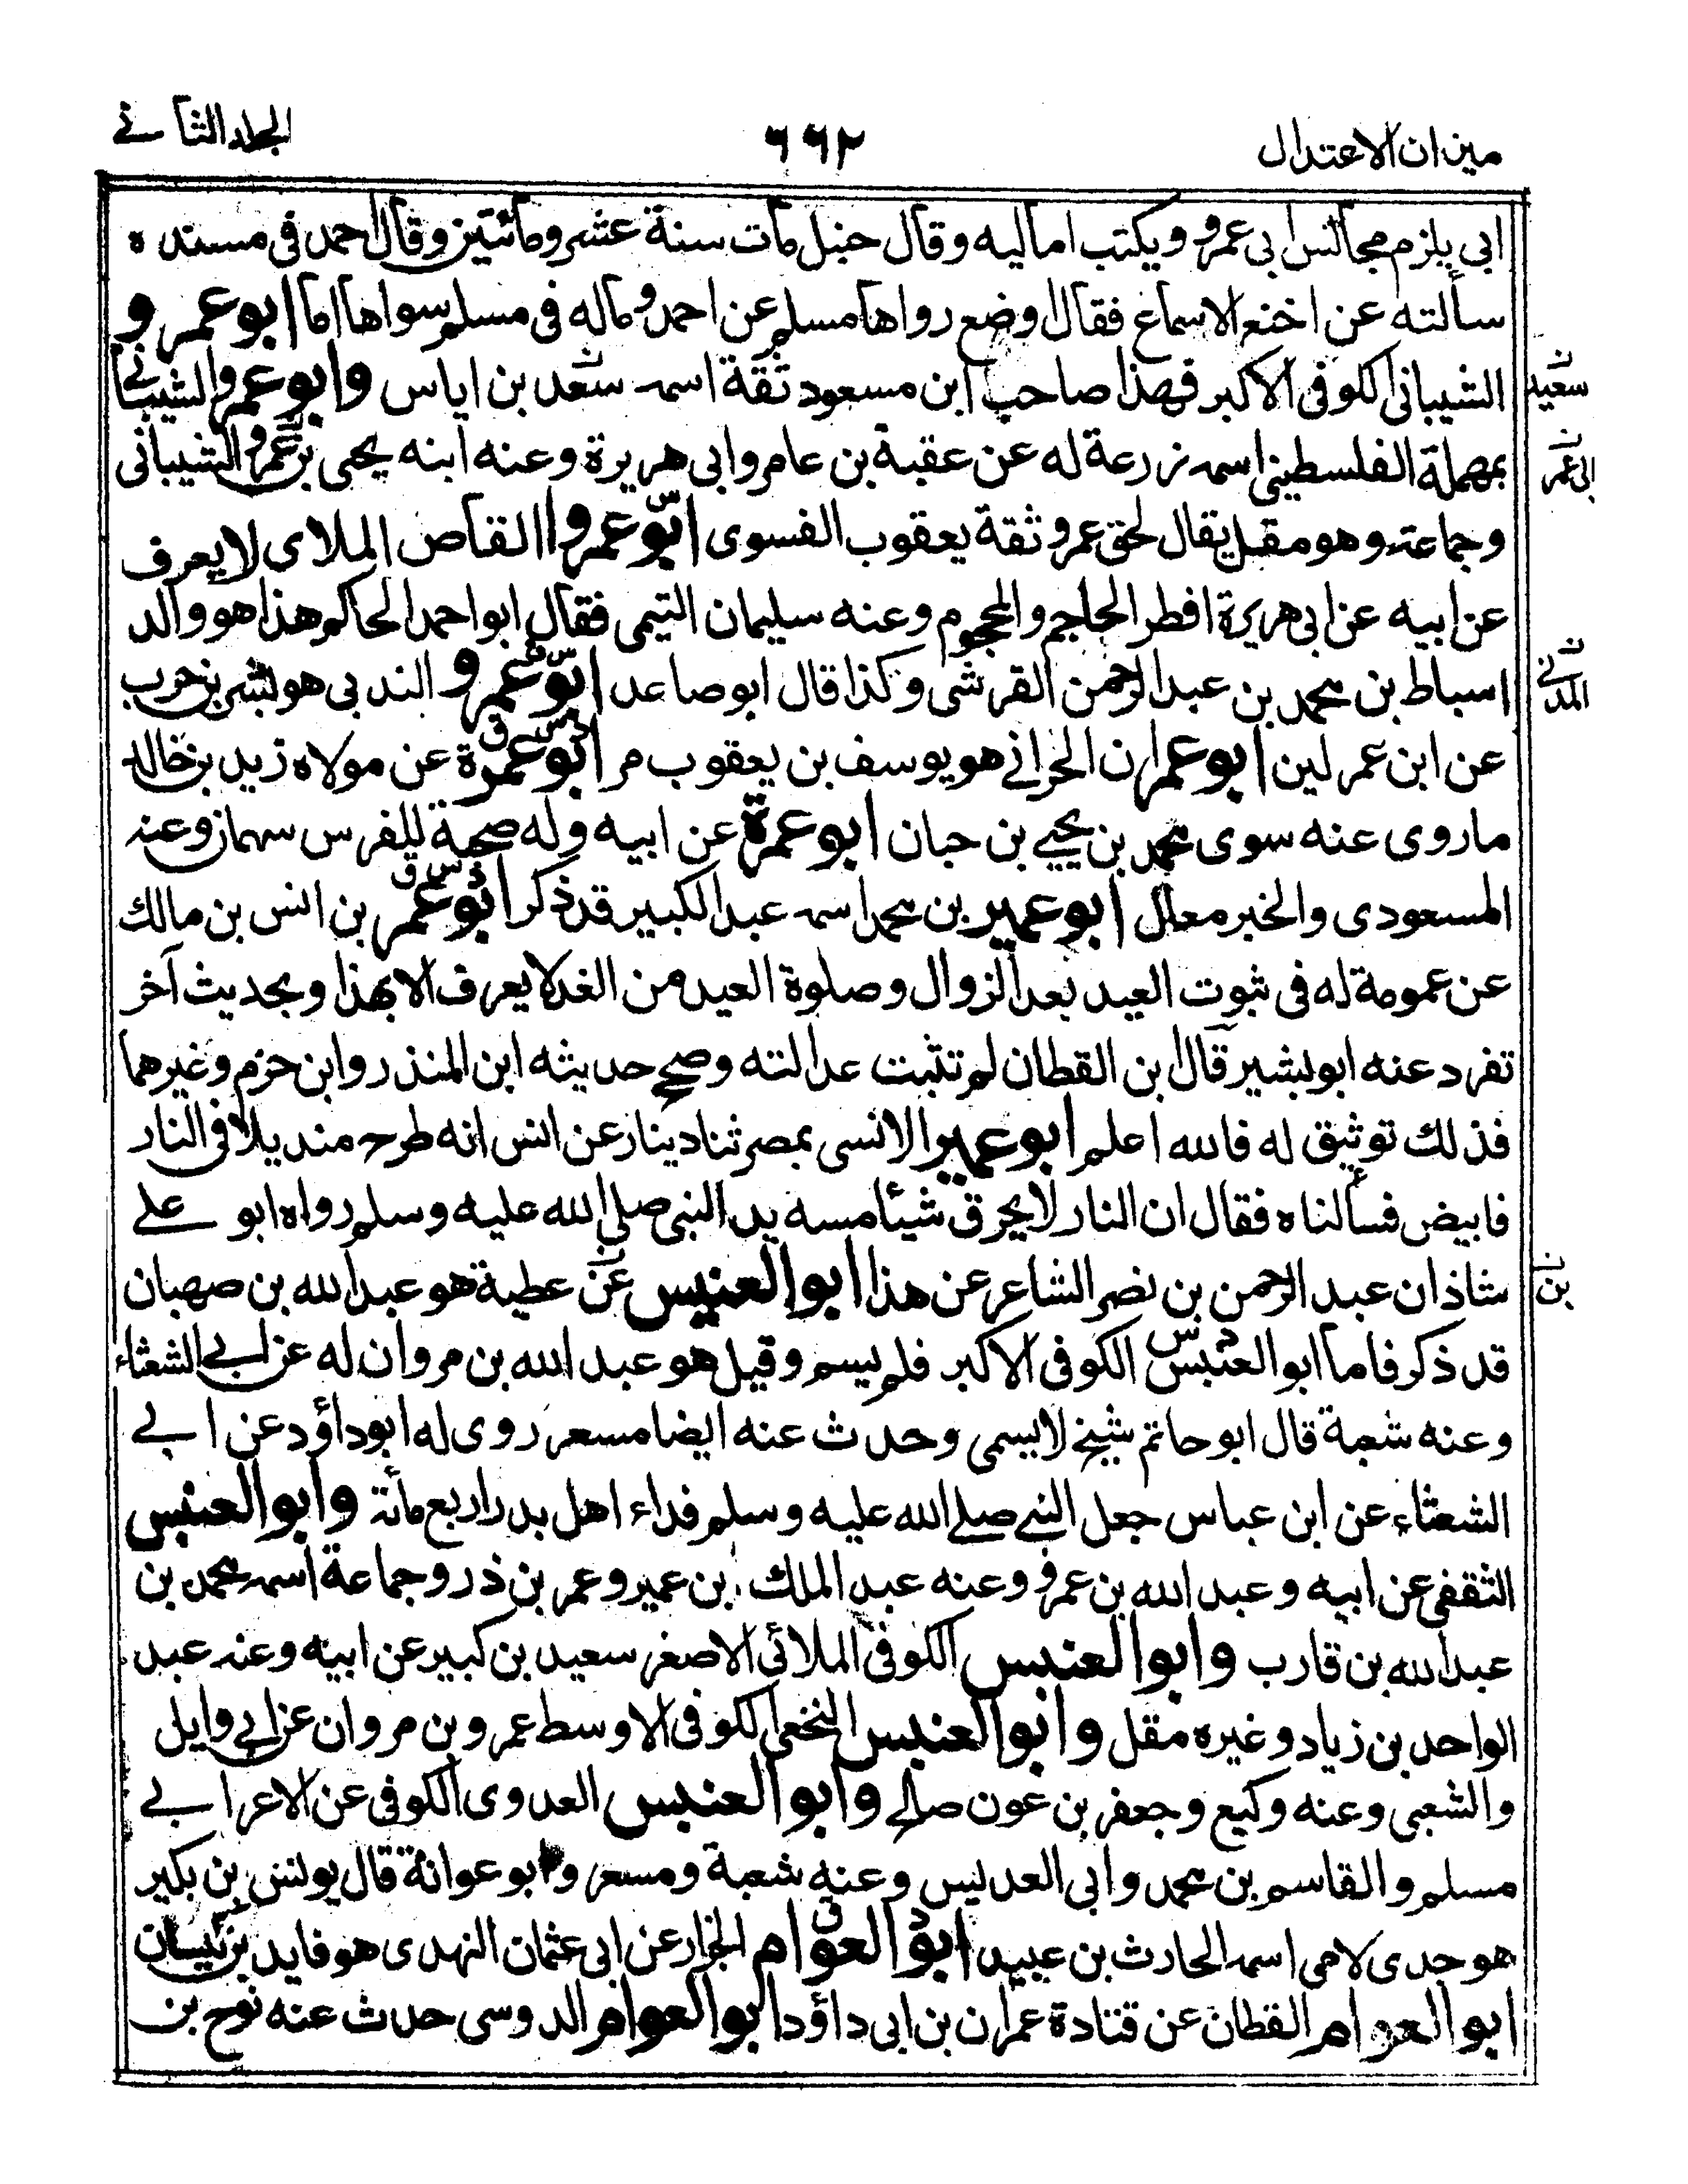 ميزان الاعتدال
٦٦٢
الجلد الثانے
ابی یلزم مجالس ابی عمرو ویکتب امالیه وقال حنبل مات سنة عشر ومائتین وقال احمد فی مسنده
سألته عن اخنع الاسماع فقال اوضع رواها مسلم عن احمد وماله فی مسلم سواها اما ابو عمرو
الشیبانی الکوفی الاکبر فهذا صاحب ابن مسعود ثقة اسمه سعد بن ایاس وابو عمرو الشیبانے
سعید
بمهملة الفلسطینی اسمه زرعة له عن عقبة بن عامر وابی هریرة وعنه ابنه یحیی بن عمرو الشیبانی
ابی عمر
وجماعته وهو مقبل یقال لحق عمرو ثقة یعقوب الفسوی ابو عمرو القاص الملای لا یعرف
عن ابیه عن ابی هریرة افطر الحاجم والمحجوم وعنه سلیمان التیمی فقال ابو احمد الحاکم هذا هو والد
اسباط بن محمد بن عبد الرحمن القرشی وکذا قال ابو صاعد ابو عمرو الندبی هو بشر بن حرب
المدنے
عن ابن عمر لین ابو عمران الحرانے هو یوسف بن یعقوب مر ابو عمرة عن مولاه زید بن خالد
ما روی عنه سوی محمد بن یحیے بن حبان ابو عمرة عن ابیه وله صحبة للفرس سهمان وعنه
المسعودی والخبر معال ابو عمیر بن محمد اسمه عبد الکبیر قد ذکر ابو عمر بن انس بن مالك
عن عمومة له فی ثبوت العید بعد الزوال وصلوة العید من الغد لا یعرف الا بهذا وبحدیث آخر
تفرد عنه ابو بشیر قال بن القطان لم تثبت عدالته وصحح حدیثه ابن المنذر وابن حزم وغیرهما
فذلك توثیق له فالله اعلم ابو عمیر الانسی بمصر ثنا دینار عن انس انه طرح مندیلا فی النار
فابیض فسألناه فقال ان النار لا یحرق شیئا مسه ید النبی صلی الله علیه وسلم رواه ابو علے
شاذان عبد الرحمن بن نصر الشاعر عن هذا ابو العنبس عن عطیة هو عبد الله بن صهبان
بن
قد ذکر فاما ابو العنبس الکوفی الاکبر فلم یسم وقیل هو عبد الله بن مروان له عن ابے الشعثاء
وعنه شعبة قال ابو حاتم شیخ لا یسمی وحدث عنه ایضا مسعر روی له ابو داؤد عن ابے
الشعثاء عن ابن عباس جعل النبے صلے الله علیه وسلم فداء اهل بدر اربع مأئة وابو العنبس
الثقفی عن ابیه وعبد الله بن عمرو وعنه عبد الملك بن عمیر وعمر بن ذر وجماعة اسمه محمد بن
عبد الله بن قارب وابو العنبس الکوفی الملائی الاصغر سعید بن کبیر عن ابیه وعنه عبد
الواحد بن زیاد وغیره مقل وابو العنبس النخعی الکوفی الاوسط عمرو بن مروان عن ابے وایل
والشعبی وعنه وکیع وجعفر بن عون صالے وابو العنبس العدوی الکوفی عن الاعرابے
مسلم والقاسم بن محمد وابی العدبس وعنه شعبة ومسعر وابو عوانة قال یونس بن بکیر
هو جدی لامی اسمه الحارث بن عبید ابو العوام الجزار عن ابی عثمان النهدی هو فاید بن کیسان
ابو العوام القطان عن قتادة عمران بن ابی داؤد ابو العوام الدوسی حدث عنه نوح بن